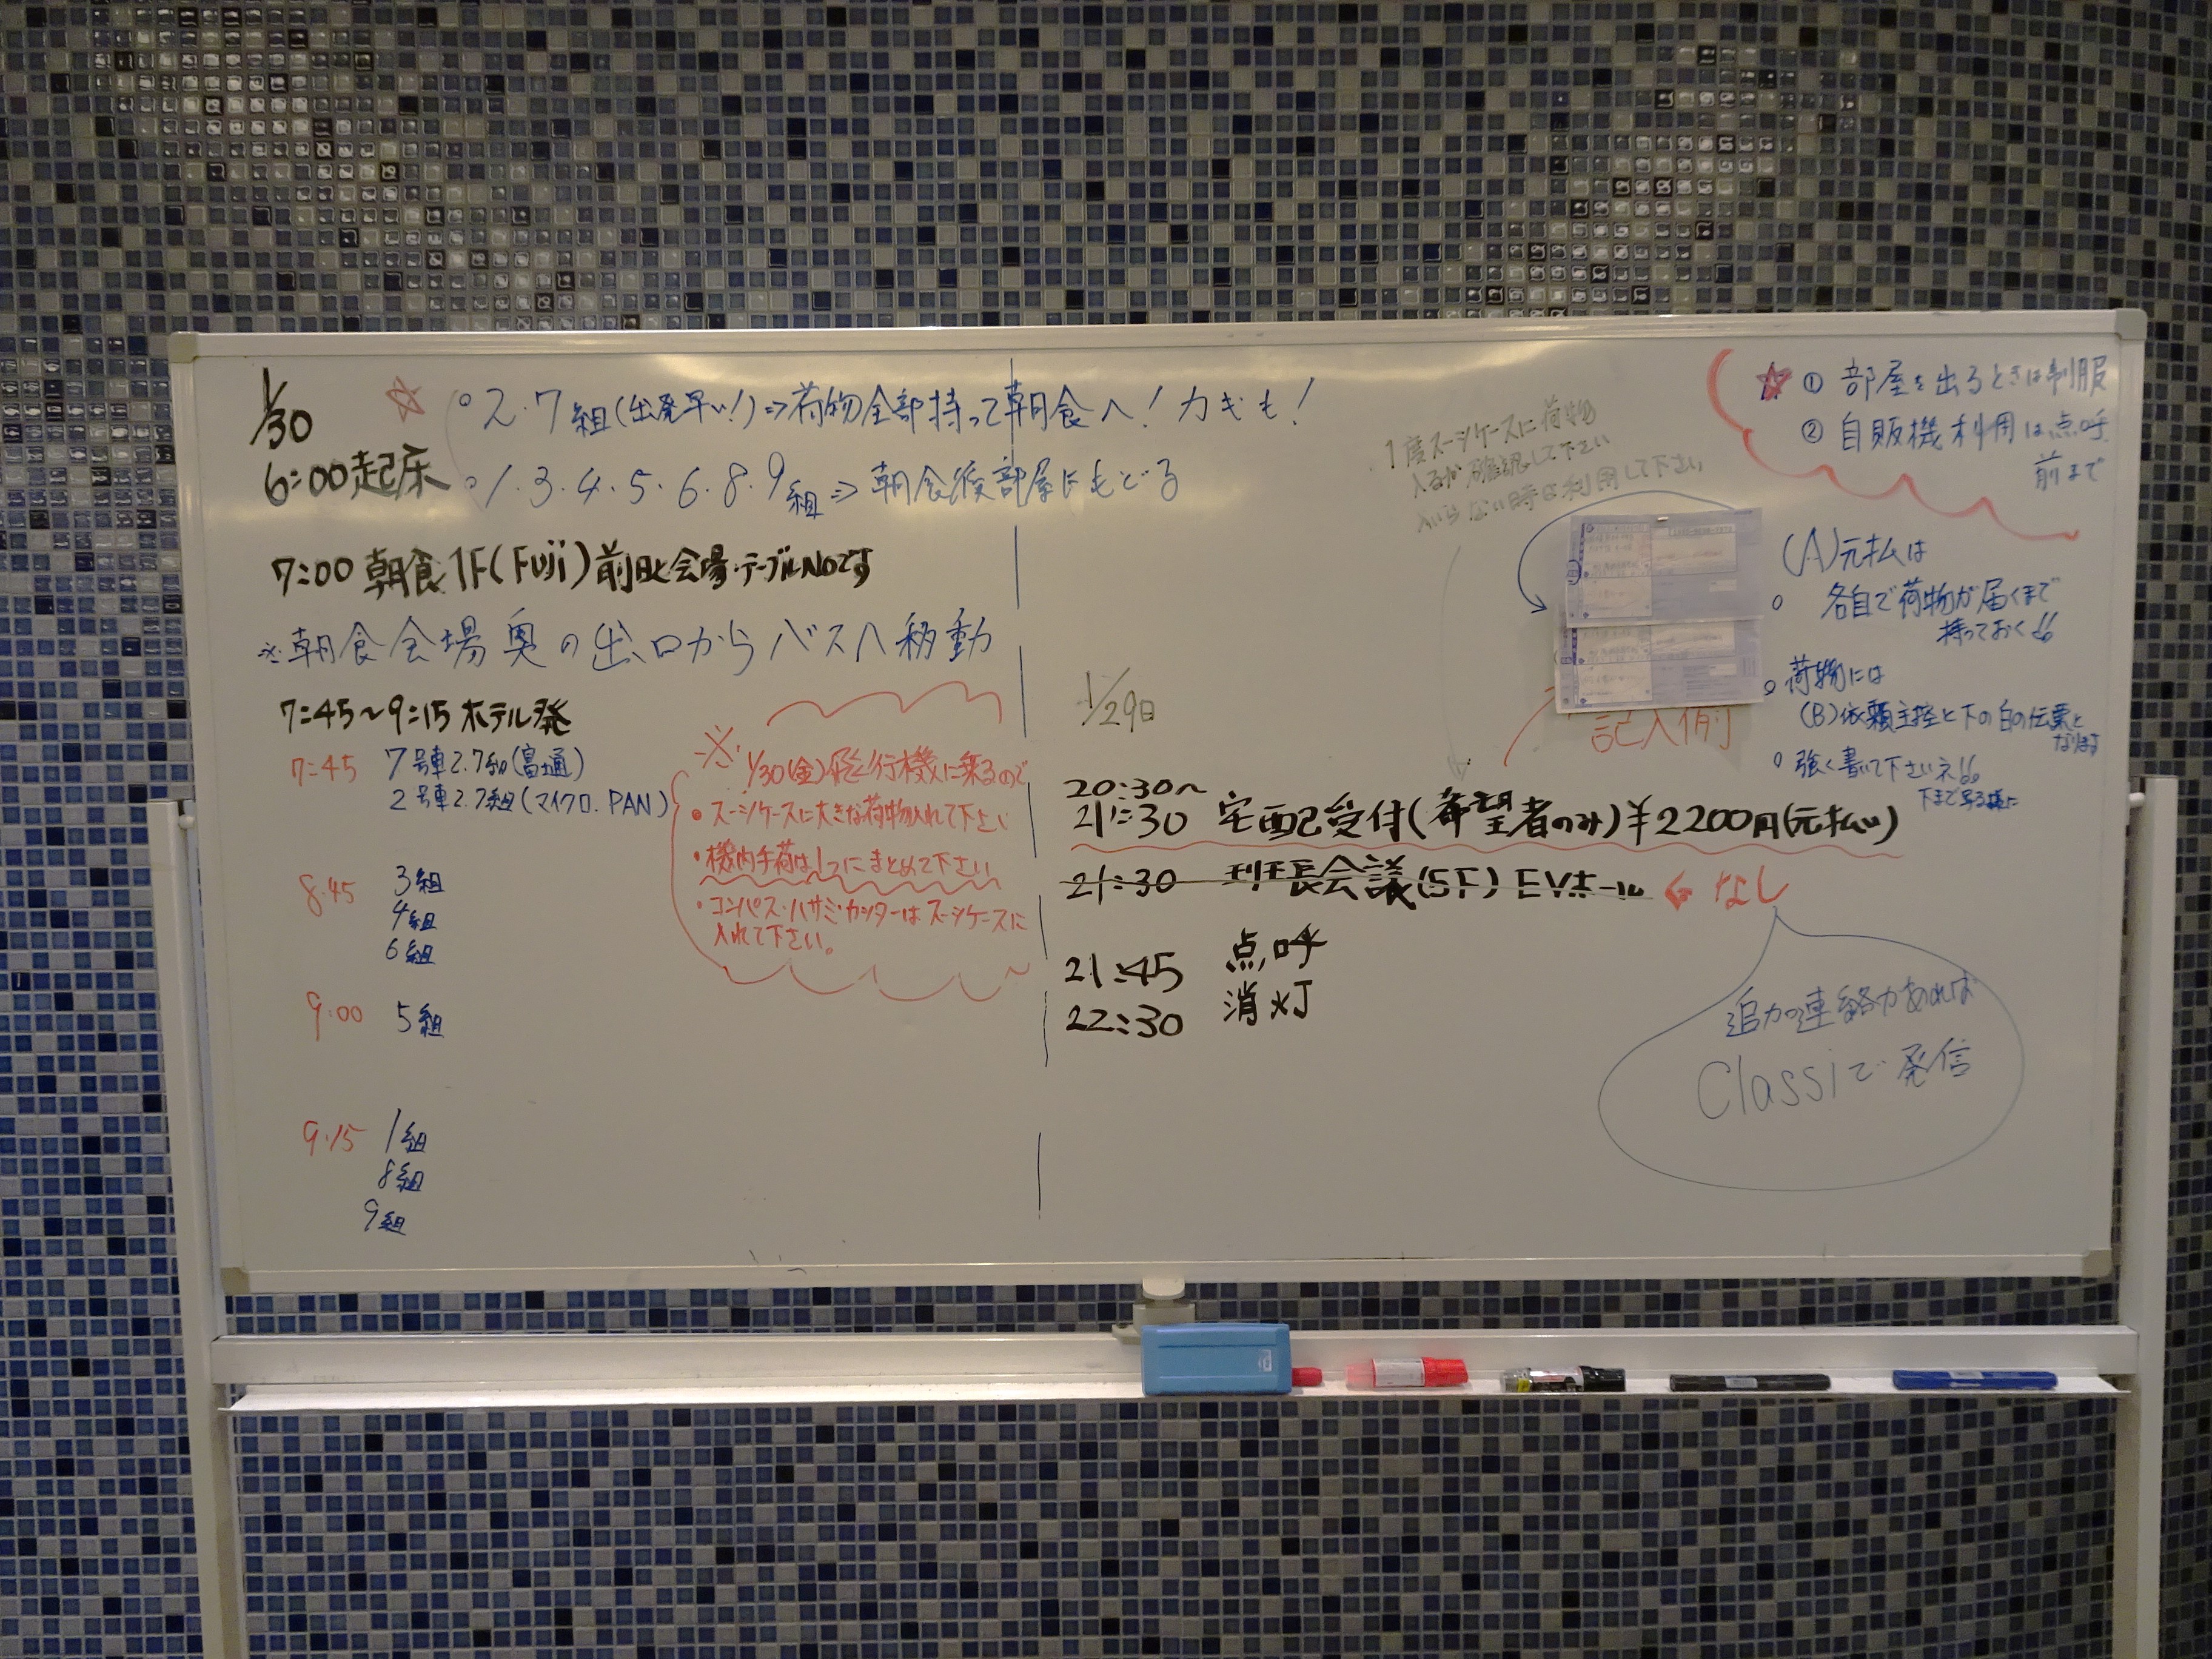 1/30
6:00起床
☆
○2.7組(出発早い!)⇒荷物全部持って朝食へ!カギも!
○1.3.4.5.6.8.9組⇒朝食後部屋にもどる
7:00 朝食1F(Fuji)前日と会場・テーブルNOです
※朝食会場奥の出口からバスへ移動
7:45~9:15 ホテル発
7:45 7号車2.7組(富士通)
2号車2.7組(マイクロ.PAN)
8:45 3組
4組
6組
9:00 5組
9:15 1組
8組
9組
※1/30(金)飛行機に乗るので
・スーツケースに大きな荷物入れて下さい
・機内手荷は1つにまとめて下さい
・コンパス・ハサミ・カッターはスーツケースに
入れて下さい。
1/29日
20:30~
21:30 宅配受付(希望者のみ)¥2200円(元払い)
21:30 班長会議(5F)EVホール ⇐なし
21:45 点呼
22:30 消灯
追加連絡があれば
Classiで発信
1度スーツケースに荷物
入るか確認して下さい
入いらない時は利用して下さい
記入例
☆① 部屋を出るときは制服
② 自販機利用は点呼
前まで
(A)元払は
○ 各自で荷物が届くまで
持っておく!!
○荷物には
(B)依頼主控と下の白の伝票と
なります
○強く書いて下さいネ!!
下まで写る様に